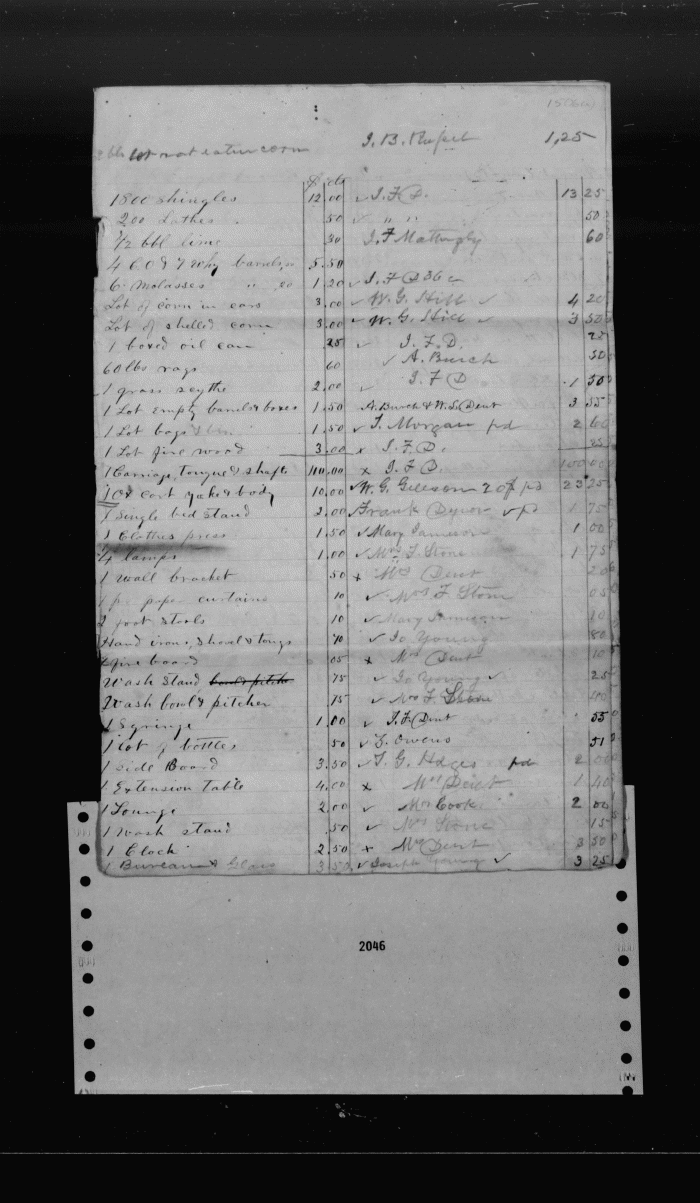 lot not eatin corn J. B. 1,25
$ cts
1800 shingles 12.00 ✓ J. F. D. 13 25
200 Lathes .50 ✓ " " 50
1/2 bbl lime 30 J. F Mattingly 60
barrels 5.50
6 Molasses " 1.20 ✓ J. F D 36c
Lot of corn in ears 3.00 ✓ W. G. Hill ✓ 4 20
Lot of shelled corn 3.00 ✓ W. G. Hill ✓ 3 50
1 boxed oil can 25 ✓ J. F. D. 25
60 lbs rags 60 ✓ A. Burch 50
1 grass scythe 2.00 ✓ J F D 1 50
1 Lot empty barrels & boxes 1.50 A. Burch & W. S. Dent 3 55
1 Lot bags 1.50 ✓ J. Morgan pd 2 60
1 Lot fire wood 3.00 x J. F. D.
1 Carriage, tongue & shafts 110.00 x J. F D. 100 00
1 Ox cart yake & body 10.00 ✓ W. G. 23 25
1 Single bed stand 2.00 ✓ Frank ✓ pd 1 75
1 Clothes press 1.50 ✓ Mary Jameson 1 00
4 lamps 1.00 ✓ Mrs F. Stone 1 75
1 Wall bracket 50 x Mrs Dent 20
1 pr paper curtains 10 ✓ Mrs F Stone 05
2 foot stools 10 ✓ Mary Jameson 10
Hand irons, shovel & tongs 70 ✓ Jo Young 80
2 fire board 05 x Mrs Dent 10
Wash stand bowl & pitcher 75 ✓ Jo Young ✓ 25
Wash bowl & pitcher 75 ✓ Mrs F. Stone
1 Syringe 1.00 ✓ J. F. Dent 55
1 lot of bottles 50 ✓ Owens 51
1 side Board 3.50 ✓ T. G. Hdges pd 2 00
1 Extension table 4.00 x Mrs Dent 1 40
1 Lounge 2.00 ✓ Mr Cook 2 00
1 Wash stand .50 ✓ Mrs Stone 15
1 Clock 2.50 x Mrs Dent 3 50
1 Bureau & Glass 3.50 ✓ Joseph Young ✓ 3 25
2046